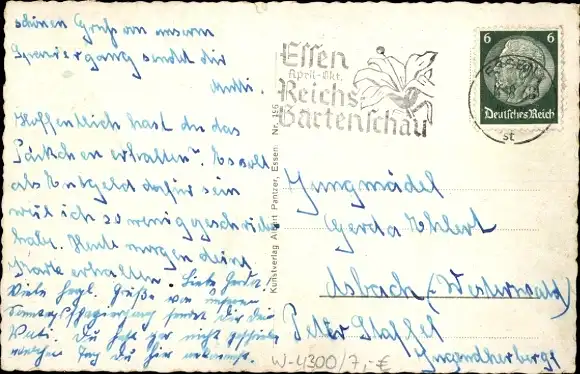 schönen Gruß von unserm
Spaziergang sendet dir
Mutti.
Hoffentlich hast du das
Päckchen erhalten? Es soll
als Entgeld dafür sein
weil ich so wenig geschrieben
habe. Heute morgen deine
Karte erhalten. Liebe Gerda!
Viele herzl. Grüße von unserem
Sonntagsspaziergang sendet dir dein
Vati. Du hast gar nicht geschrieben
welchen Tag du hier ankommst.
Essen
April-Okt.
Reichs
Gartenschau
6 6
Deutsches Reich
Kunstverlag Albert Pantzer, Essen. Nr. 196
Jungmädel
Gerda Ehlert
Asbach (Westerwald)
Peter Staffel
Jugendherberge
W-4300/7,-€